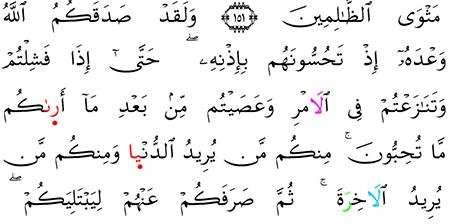 مَثْوَى ٱلظَّٰلِمِينَ ۝١٥١ وَلَقَدْ صَدَقَكُمُ ٱللَّهُ
وَعْدَهُۥٓ إِذْ تَحُسُّونَهُم بِإِذْنِهِۦ ۖ حَتَّىٰٓ إِذَا فَشِلْتُمْ
وَتَنَٰزَعْتُمْ فِى ٱلَامْرِ وَعَصَيْتُم مِّنۢ بَعْدِ مَآ أَر۪ىٰكُم
مَّا تُحِبُّونَ ۚ مِنكُم مَّن يُرِيدُ ٱلدُّنْي۪ا وَمِنكُم مَّن
يُرِيدُ ٱلَاخِرَةَ ۚ ثُمَّ صَرَفَكُمْ عَنْهُمْ لِيَبْتَلِيَكُمْ ۖ